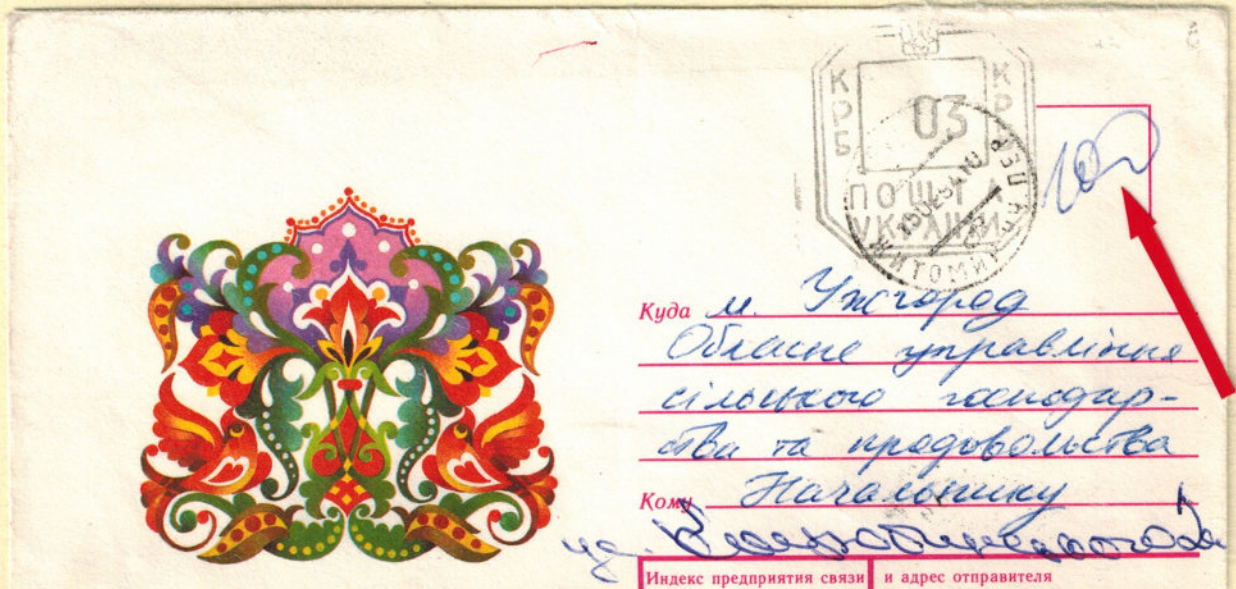 КРБ 03 КРБ
ПОШТА
УКРАЇНИ
ЖИТОМИР
Куда м. Ужгород
Обласне управління
сільського господар-
ства та продовольства
Кому Начальнику
ул.
Индекс предприятия связи и адрес отправителя